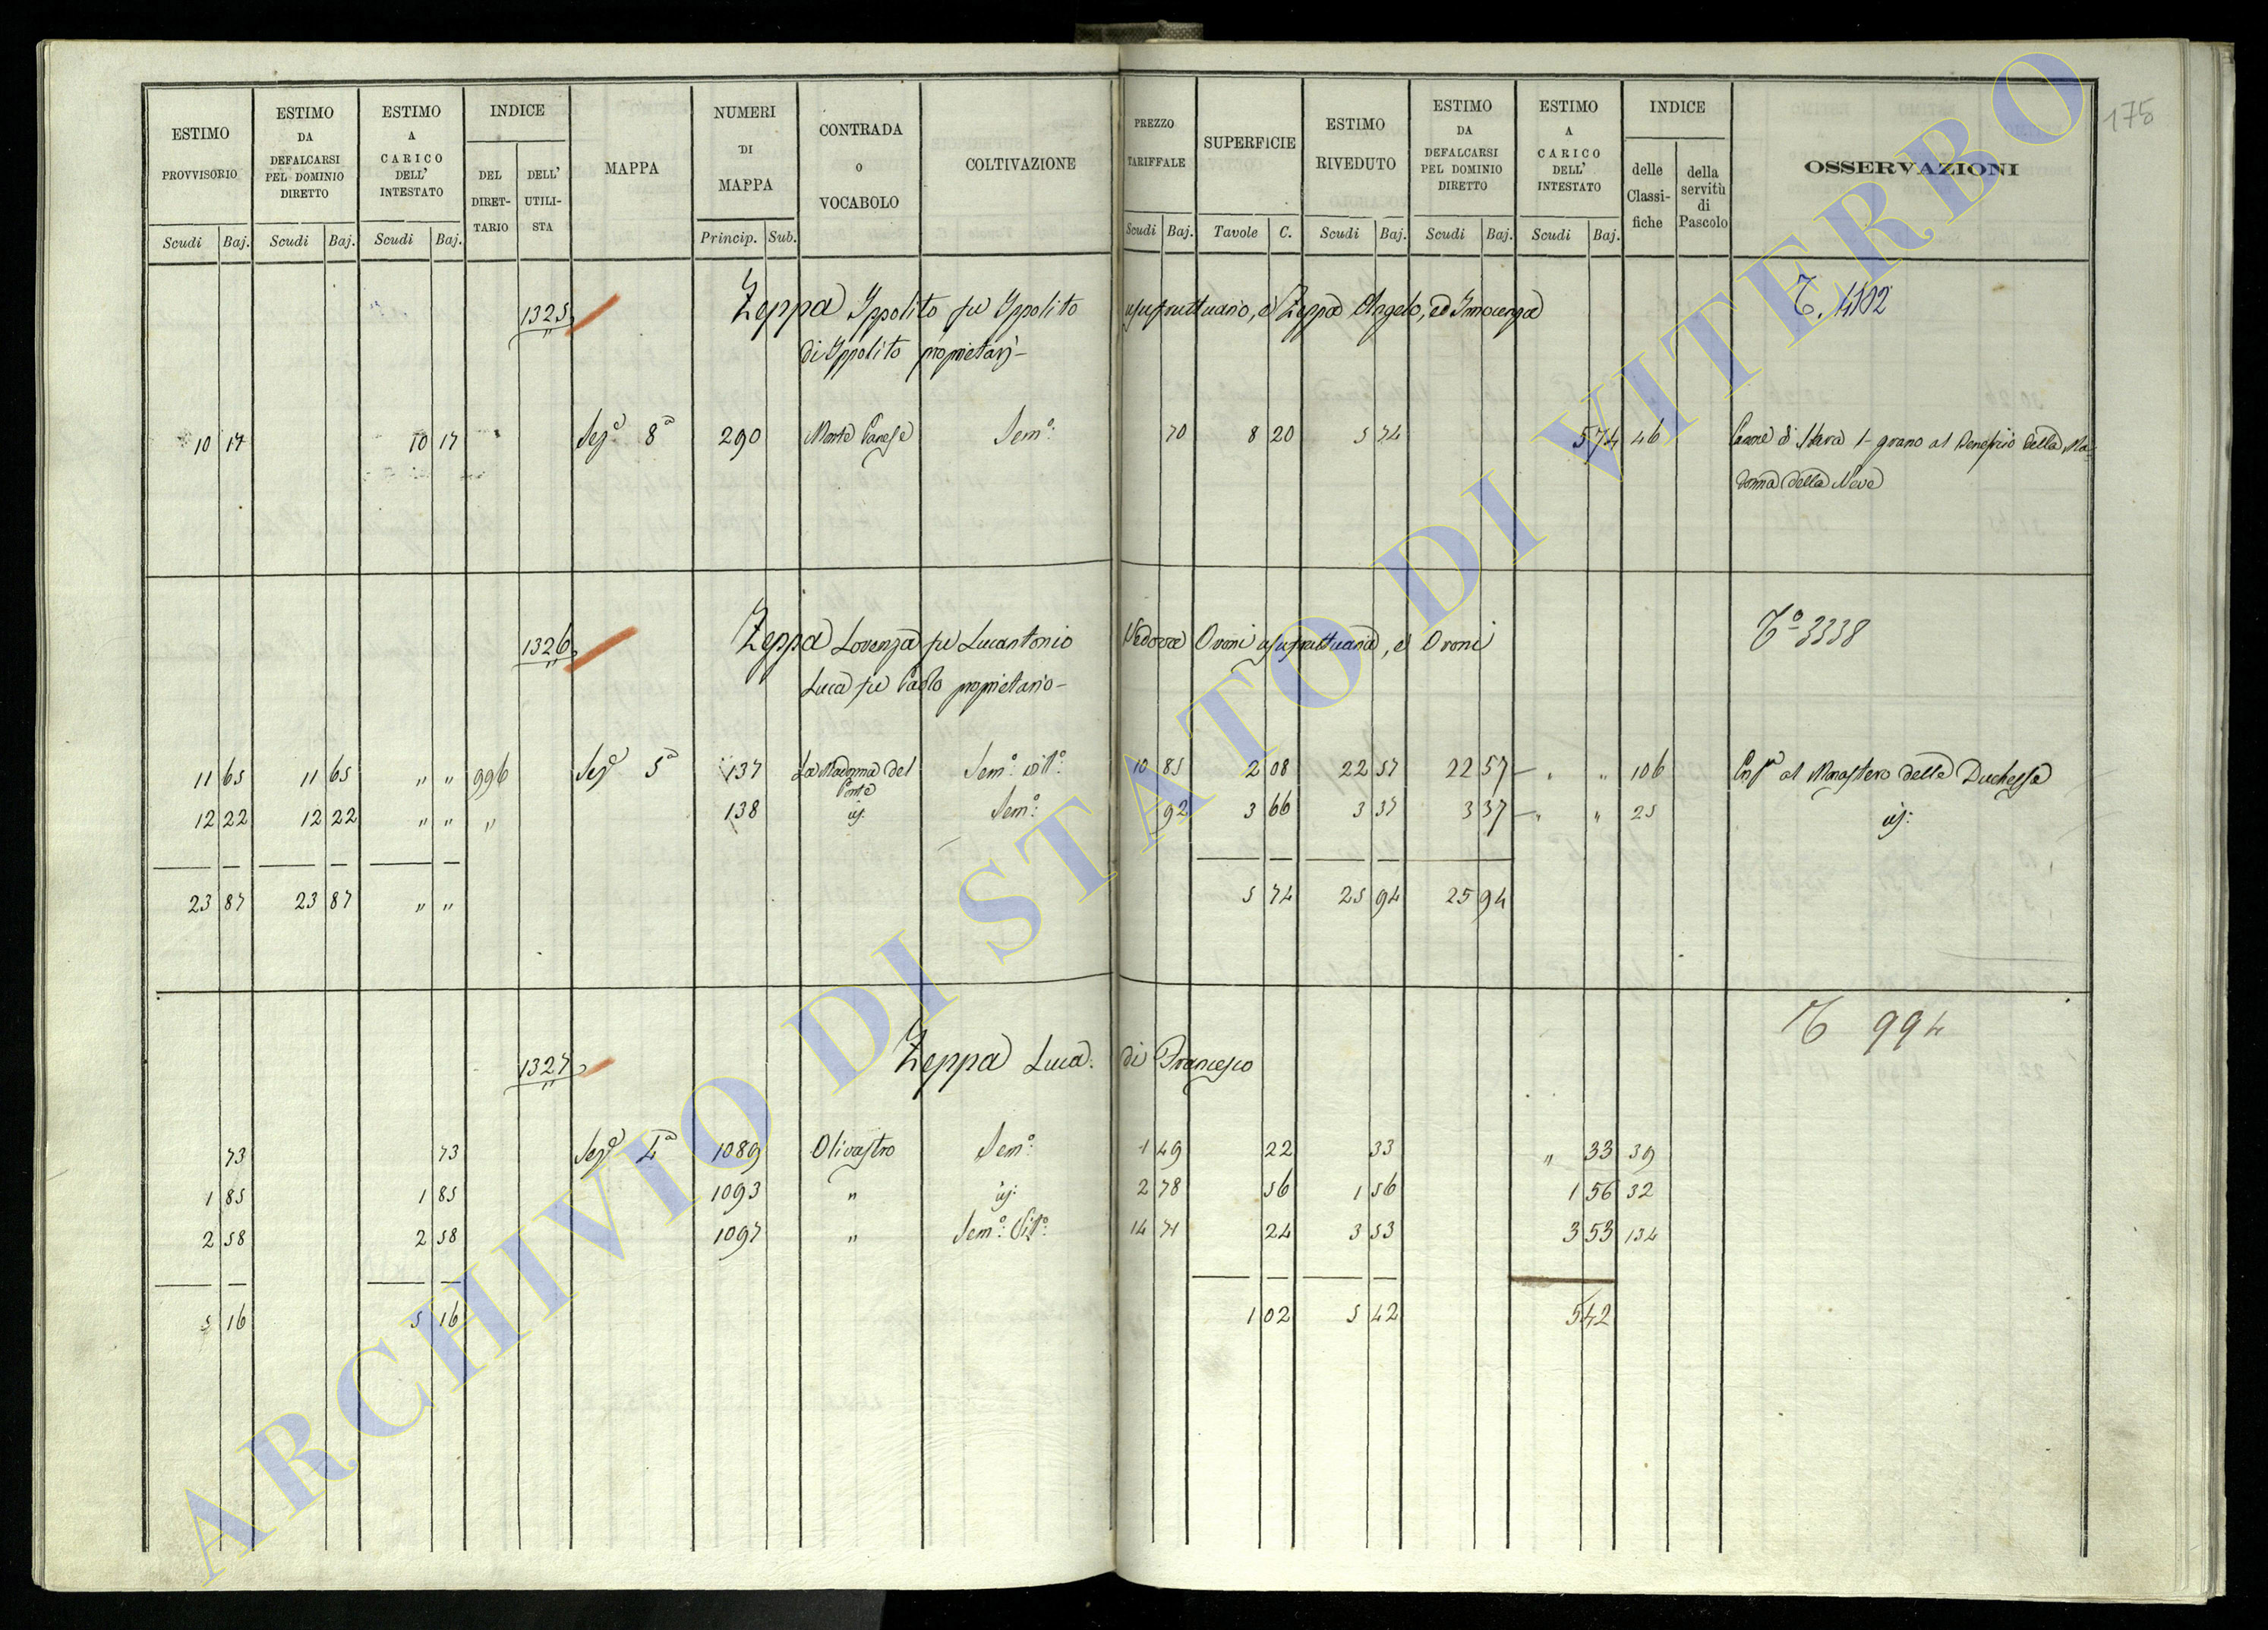 175
ESTIMO PROVVISORIO | ESTIMO DA DEFALCARSI PEL DOMINIO DIRETTO | ESTIMO A CARICO DELL' INTESTATO | INDICE | MAPPA | NUMERI DI MAPPA | CONTRADA o VOCABOLO | COLTIVAZIONE | PREZZO TARIFFALE | SUPERFICIE | ESTIMO RIVEDUTO | ESTIMO DA DEFALCARSI PEL DOMINIO DIRETTO | ESTIMO A CARICO DELL' INTESTATO | INDICE | OSSERVAZIONI
DEL DIRET-TARIO | DELL' UTILI-STA | delle Classi-fiche | della servitù di Pascolo
Scudi | Baj. | Scudi | Baj. | Scudi | Baj. | Princip. | Sub. | Scudi | Baj. | Tavole | C. | Scudi | Baj. | Scudi | Baj. | Scudi | Baj.
1325 Zeppa Ippolito fu Ippolito usufruttuario, e Zeppa Angelo, ed Innocenza
di Ippolito proprietarj -
10 17 | 10 17 | Sezª 8ª | 290 | Monte Canese | Semº: | 70 | 8 20 | 5 74 | 5 74 | 46 | Canone di Stara 1- grano al Beneficio della Ma-
donna della Neve
1326 Zeppa Lorenza fu Lucantonio Vedova Oroni usufruttuaria, e Oroni Tº 3338
Luca fu Paolo proprietario -
11 65 | 11 65 | " " | 996 | Sezª 5ª | 137 | La Madonna del Ponte | Semº: vitº: | 10 85 | 2 08 | 22 57 | 22 57 | " " | 106 | Enfª al Monastero della Duchessa
12 22 | 12 22 | " " | " | 138 | id: | Semº: | 92 | 3 66 | 3 37 | 3 37 | " " | 25 | id:
23 87 | 23 87 | " " | 5 74 | 25 94 | 25 94
T 994
1327 Zeppa Luca: di Francesco
73 | 73 | Sezª 4ª | 1089 | Olivastro | Semº: | 1 49 | 22 | 33 | " 33 | 39
1 85 | 1 85 | 1093 | " | id: | 2 78 | 56 | 1 56 | 1 56 | 32
2 58 | 2 58 | 1097 | " | Semº: Vitº: | 14 71 | 24 | 3 53 | 3 53 | 134
5 16 | 5 16 | 1 02 | 5 42 | 5 42
ARCHIVIO DI STATO DI VITERBO